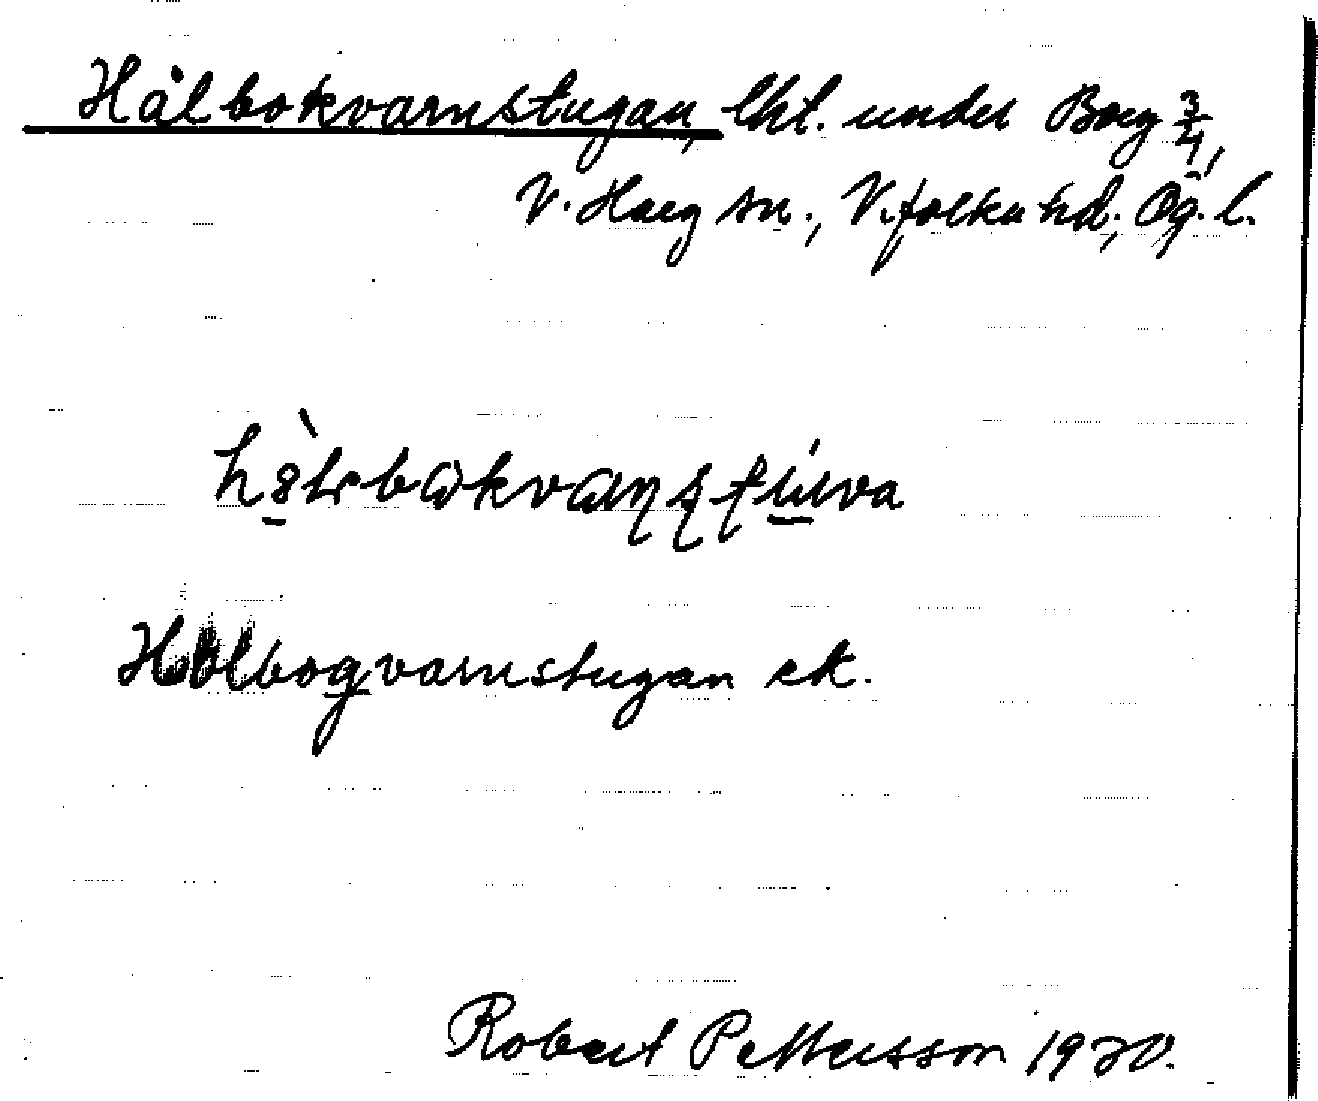 Hålbokvarnstugan, lht. under Borg 3/4,
V. Harg sn., Vifolka hd., Ög. l.
Hålbogvarnstugan ek.
Robert Pettersson 1930.